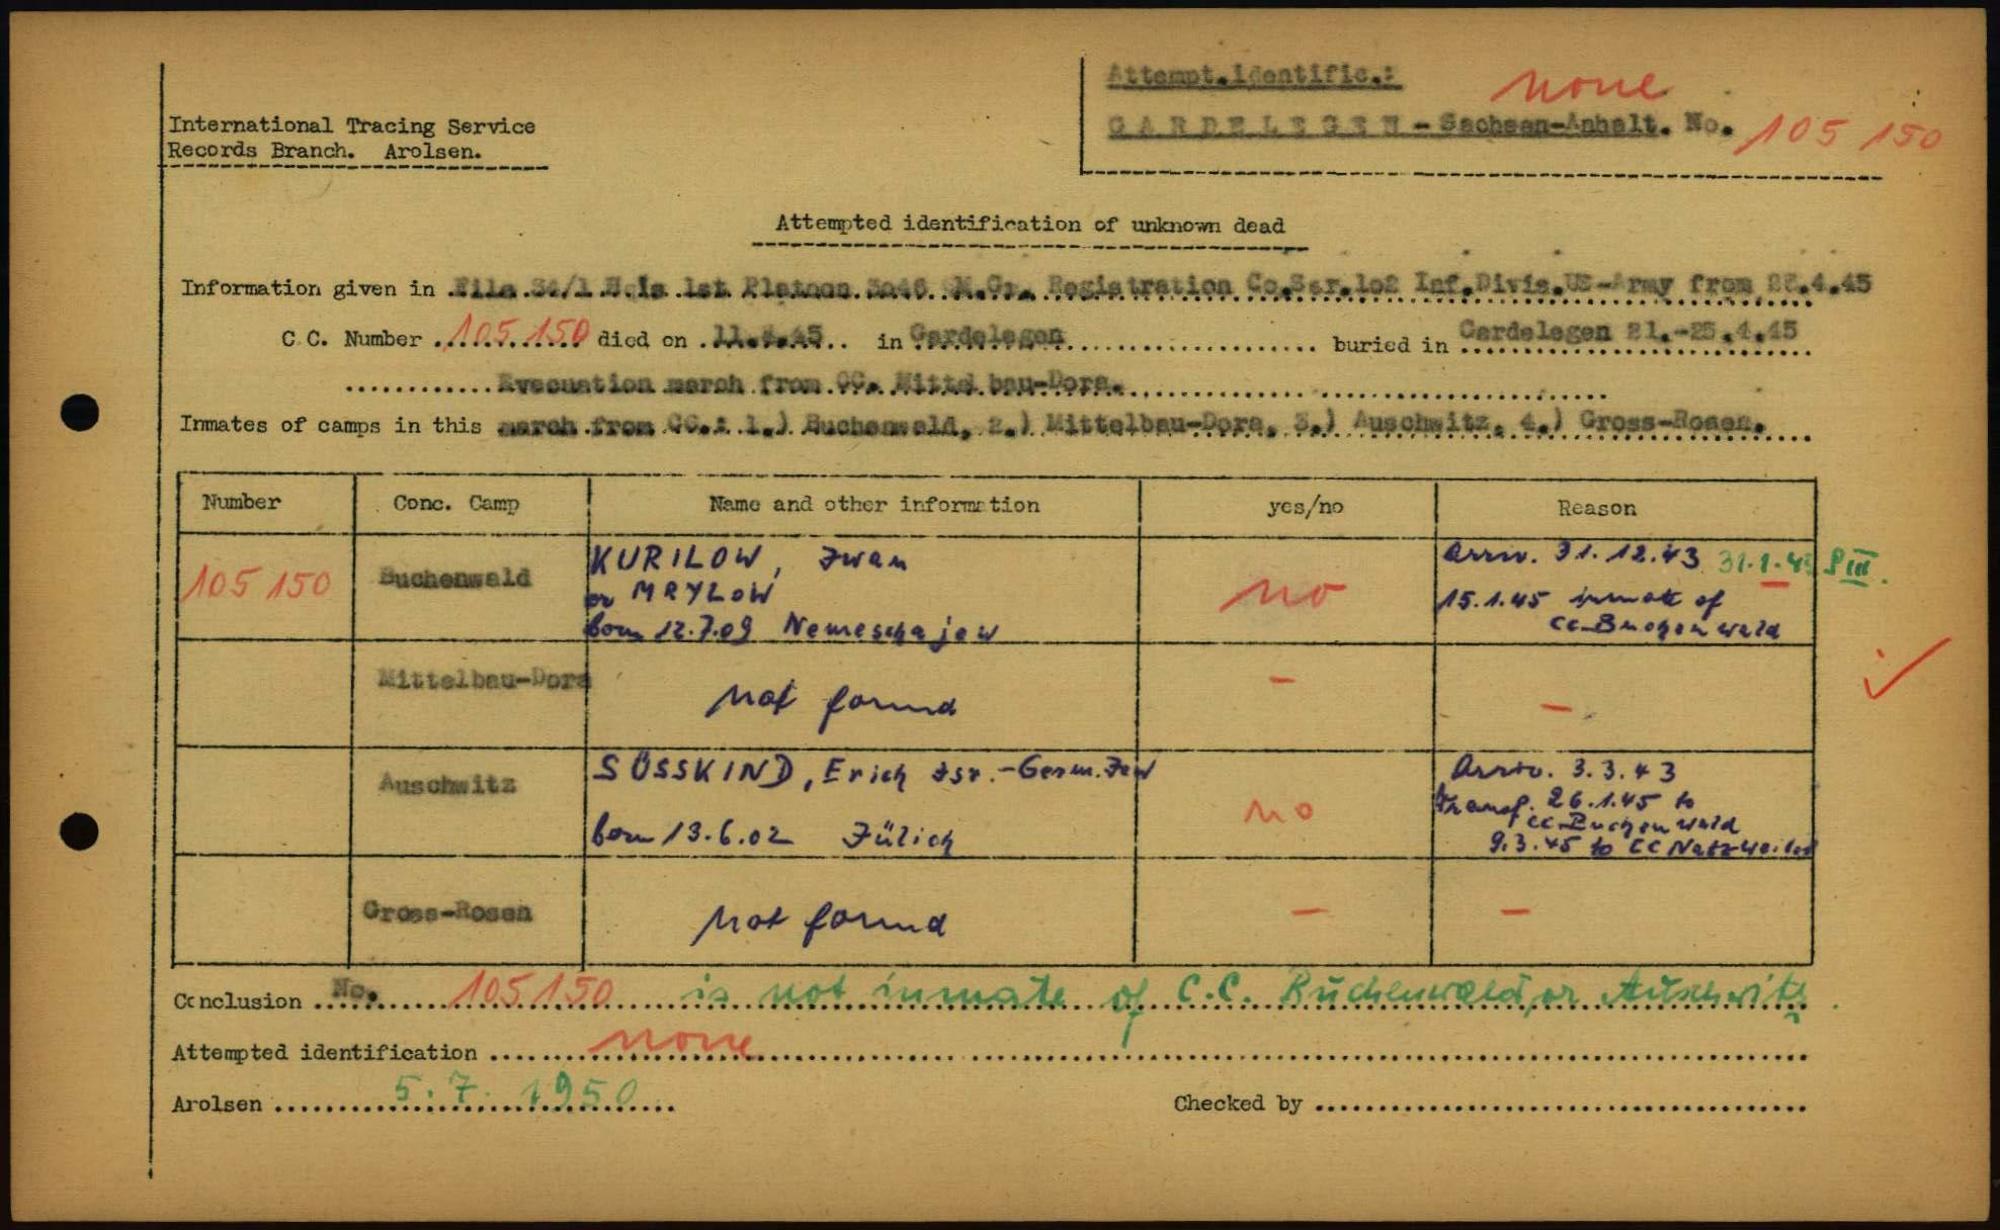 Attempt.identific.: none
International Tracing Service
GARDELEGEN - Sachsen-Anhalt. No. 105 150
Records Branch. Arolsen.
Attempted identification of unknown dead
Information given in File 34/1 1st Platoon 3046 Registration Co.Ser.102 Inf.Divis.US-Army from 4.45
C.C. Number 105 150 died on 11. 45 in Gardelegen buried in Gardelegen 21.-25.4.45
Evacuation march from CC. Mittelbau-Dora.
Inmates of camps in this march from CC.: 1.) Buchenwald, 2.) Mittelbau-Dora, 3.) Auschwitz, 4.) Gross-Rosen.
Number Conc. Camp Name and other information yes/no Reason
105 150 Buchenwald KURILOW, Iwan no Arriv. 31.12.43 31.1.45 PIII.
or MRYLOW 15.1.45 inmate of
born 12.7.09 Nemeschajew CC-Buchenwald
Mittelbau-Dora not found - -
Auschwitz SÜSSKIND, Erich Isr.-Germ.Jew no Arriv. 3.3.43
transf. 26.1.45 to
CC-Buchenwald
born 13.6.02 Jülich 9.3.45 to CC Natzweiler
Gross-Rosen not found - -
Conclusion No. 105150 is not inmate of C.C. Buchenwald, or Auschwitz.
Attempted identification none
Arolsen 5.7.1950 Checked by